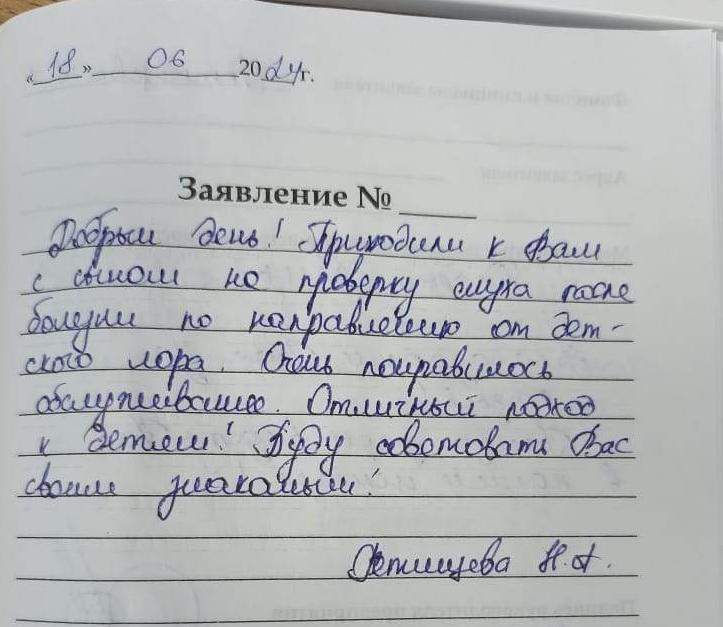 «18» 06 2024г.
Заявление № ____
Добрый день! Приходили к Вам
с сыном на проверку слуха после
болезни по направлению от дет-
ского лора. Очень понравилось
обслуживание. Отличный подход
к детям! Буду советовать Вас
своим знакомым!
Н.А.